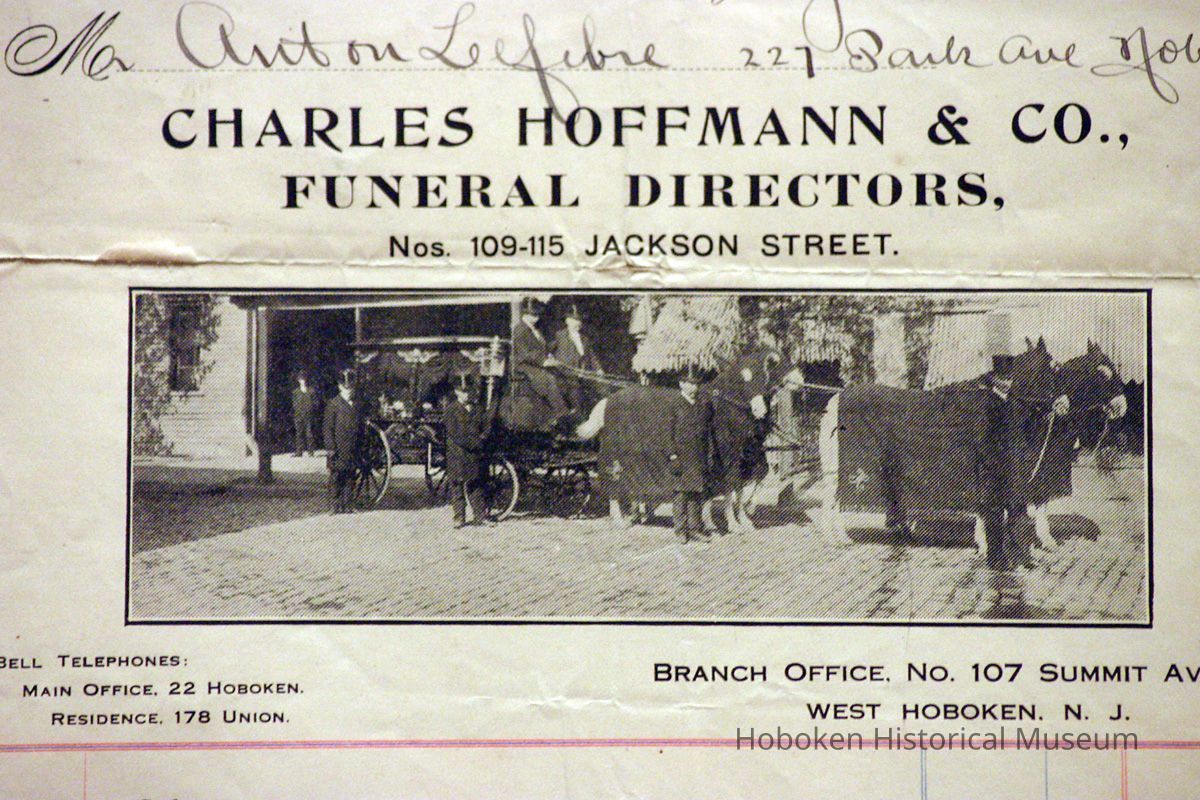 Mr Anton Lefibre 227 Park Ave Hob
CHARLES HOFFMANN & CO.,
FUNERAL DIRECTORS,
Nos. 109-115 JACKSON STREET.
BELL TELEPHONES:
MAIN OFFICE, 22 HOBOKEN.
RESIDENCE, 178 UNION.
BRANCH OFFICE, No. 107 SUMMIT AV
WEST HOBOKEN, N. J.
Hoboken Historical Museum